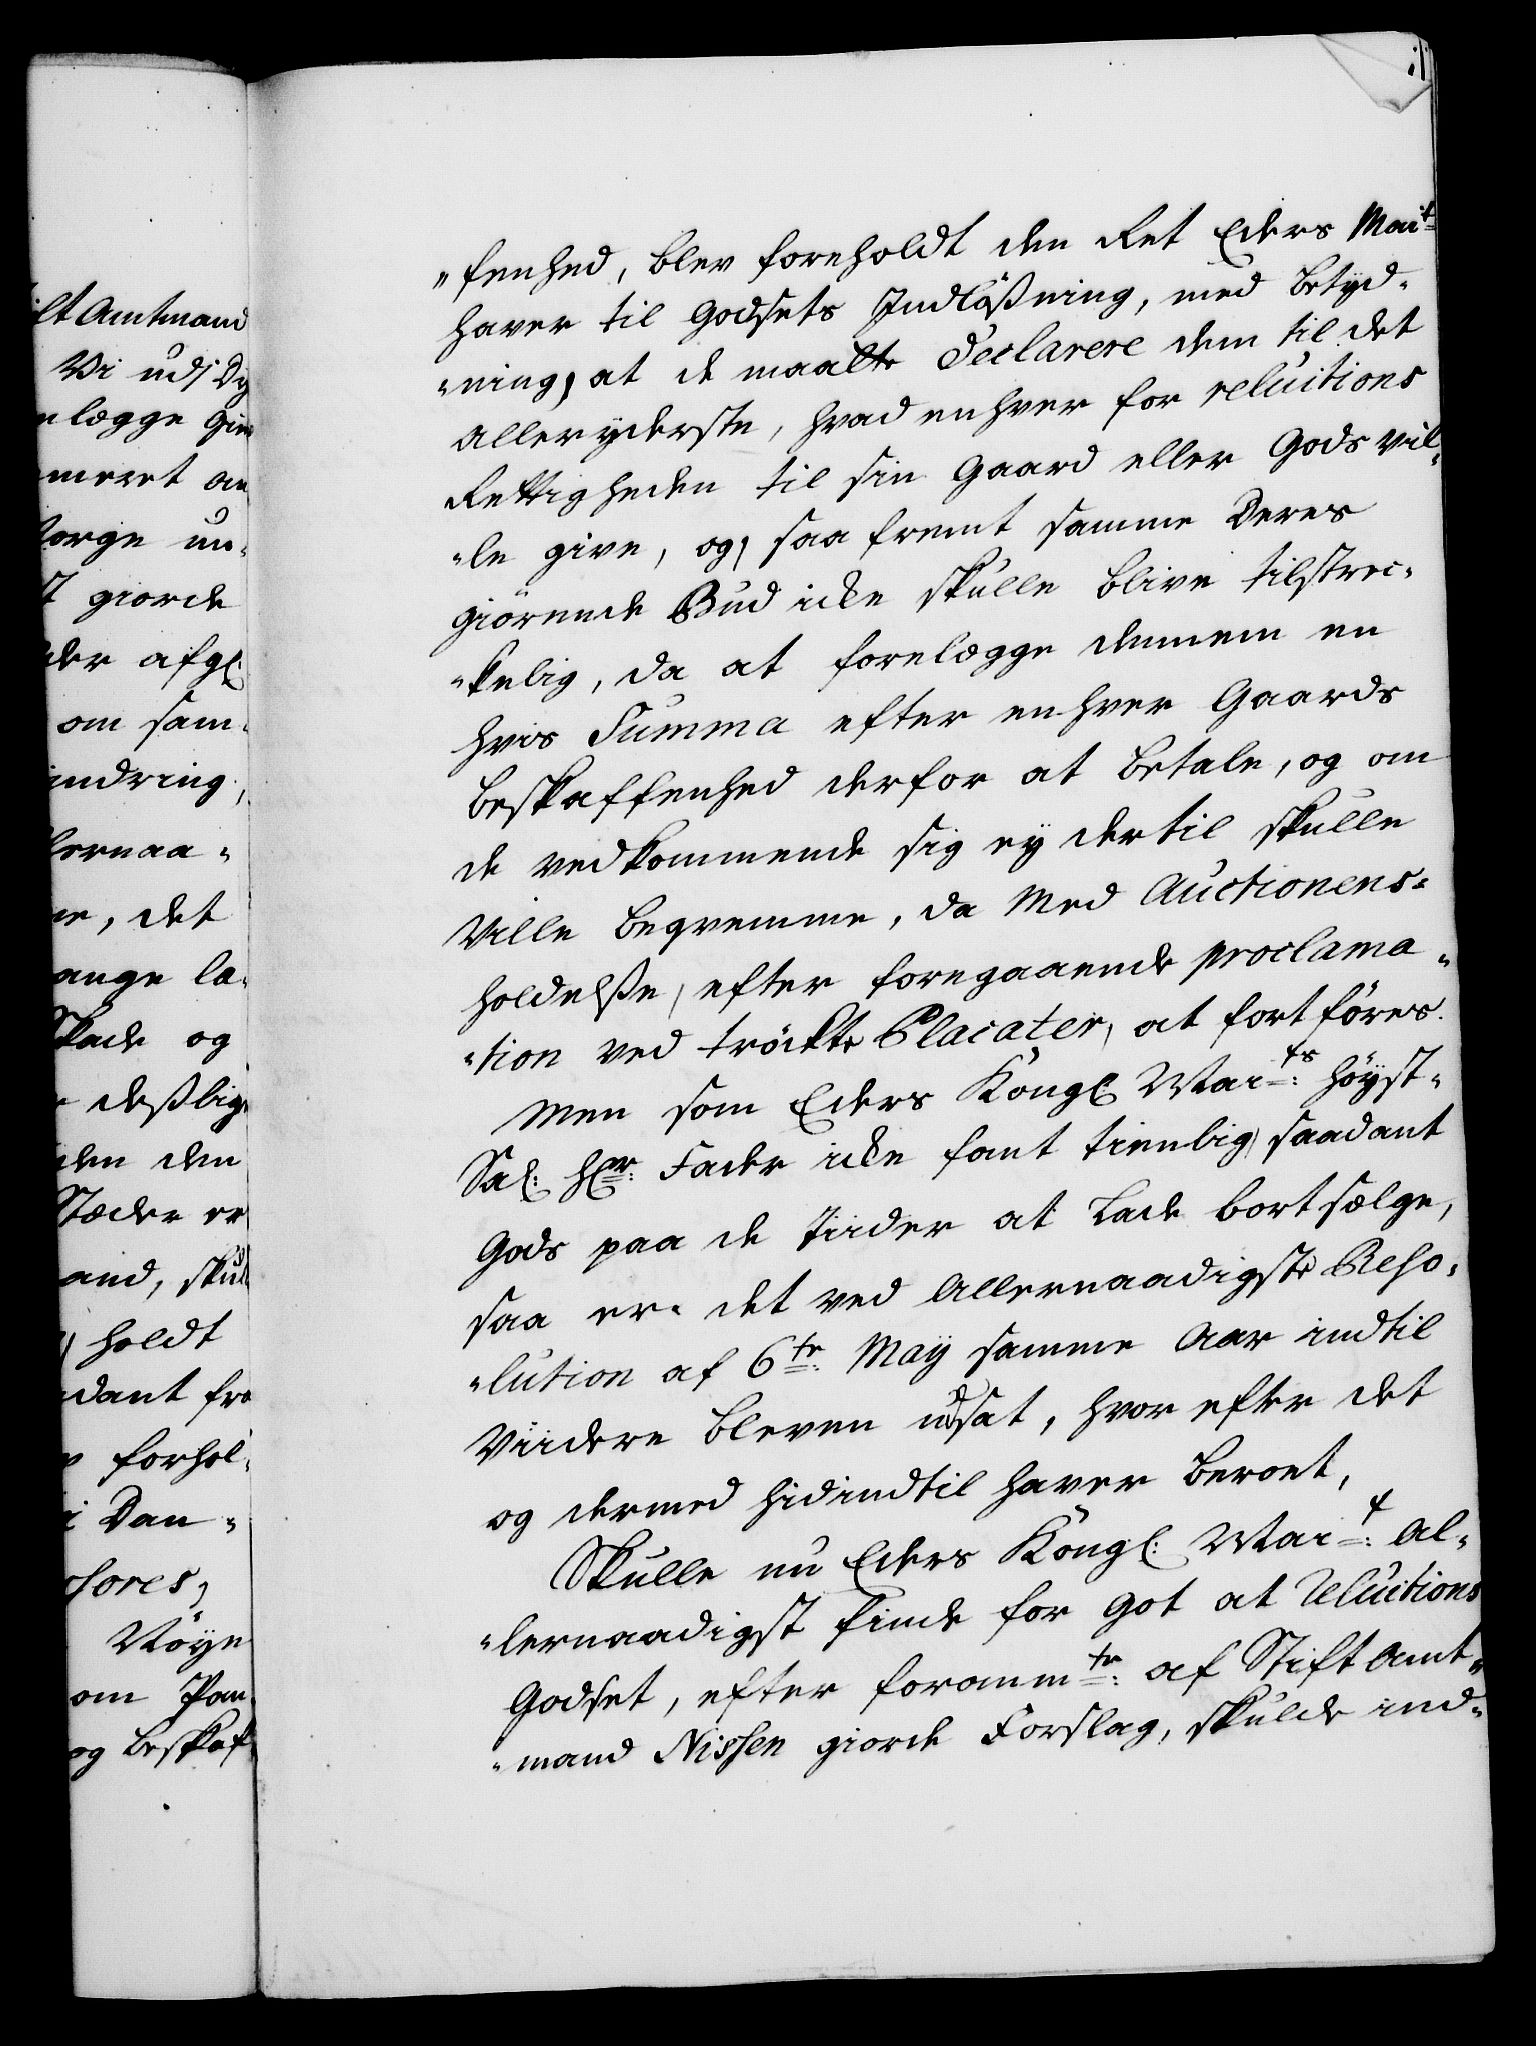 ilt Amtmand
Vi udj Dy
nlægge gi
meret an
orge un„
giorde
der afgl:
om sam„
indring,
lernaa„
ne, det
ange la„
Skade og
deßlig
den den
Stæder er
and, skul
holdt
dant fra
forhol„
i Dan„
sores,
Nöye
om Pan„
og beskaf
„fenhed, blev foreholdt den Ret Eders Mait
haver til Godsets Indlößning, med betyd„
„ning, at de maatte Declarere dem til det
alleryderste, hvad enhver for reluitions
Rettigheden til sin Gaard eller Gods vil„
„le give, og, saa fremt samme Deres
giörende Bud icke skulle blive tilstrec„
„kelig, da at forelægge dennem en
hvis Summa efter enhver Gaards
beskaffenhed derfor at betale, og om
de vedkommende sig ey dertil skulle
ville beqvemme, da med Auctionens„
holdelße, efter foregaaende proclama„
„tion ved tröckte Placater, at fortföres.
Men som Eders Kongl: Maits: höyst„
Sal: Hr: Fader icke fant tienlig, saadant
Gods paa de Tiider at lade bortsælge,
saa er det ved allernaadigste Reso„
„lution af 6te: Maÿ samme Aar indtil
viidere bleven udsat, hvor efter det
og dermed hidindtil haver beroet,
Skulle nu Eders Kongl: Mait: al„
„lernaadigst finde for got at Reluitions
Godset, efter foranmte: af Stift Amt„
„mand Nissen giorde Forslag, skulde ind„